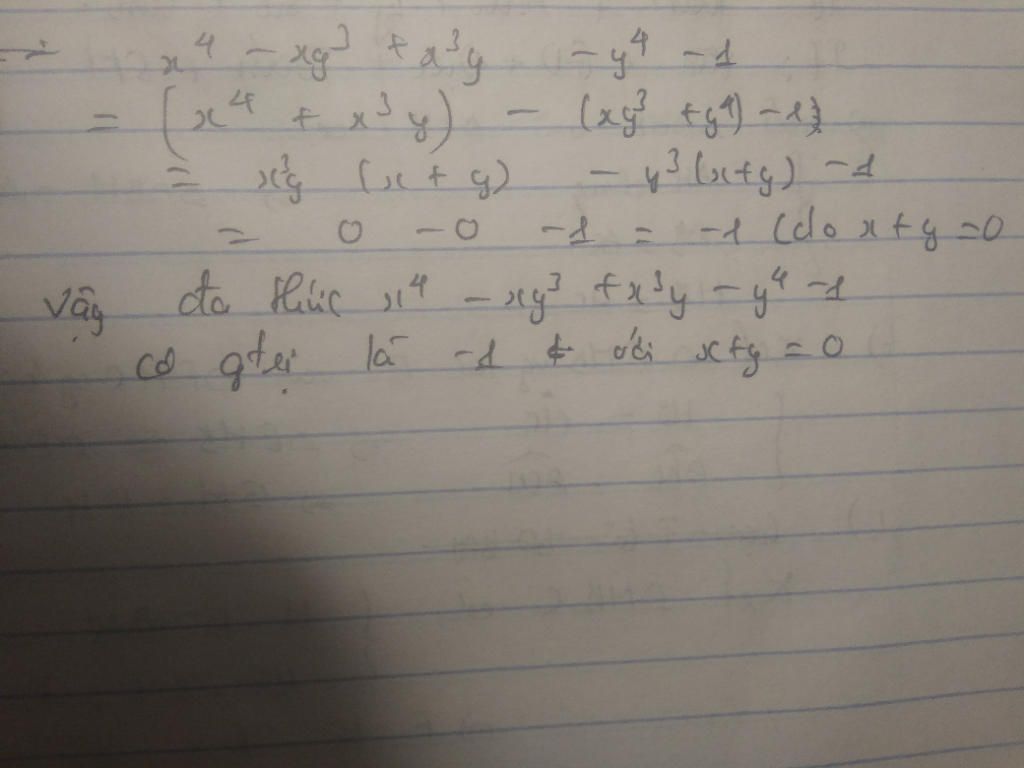 x⁴ - xy³ + x³y - y⁴ - 1
= (x⁴ + x³y) - (xy³ + y⁴) - 1
= x³y (x + y) - y³(x+y) - 1
= 0 - 0 - 1 = -1 (do x + y = 0
Vậy đa thức x⁴ - xy³ + x³y - y⁴ - 1
có gtrị là -1 với x+y = 0